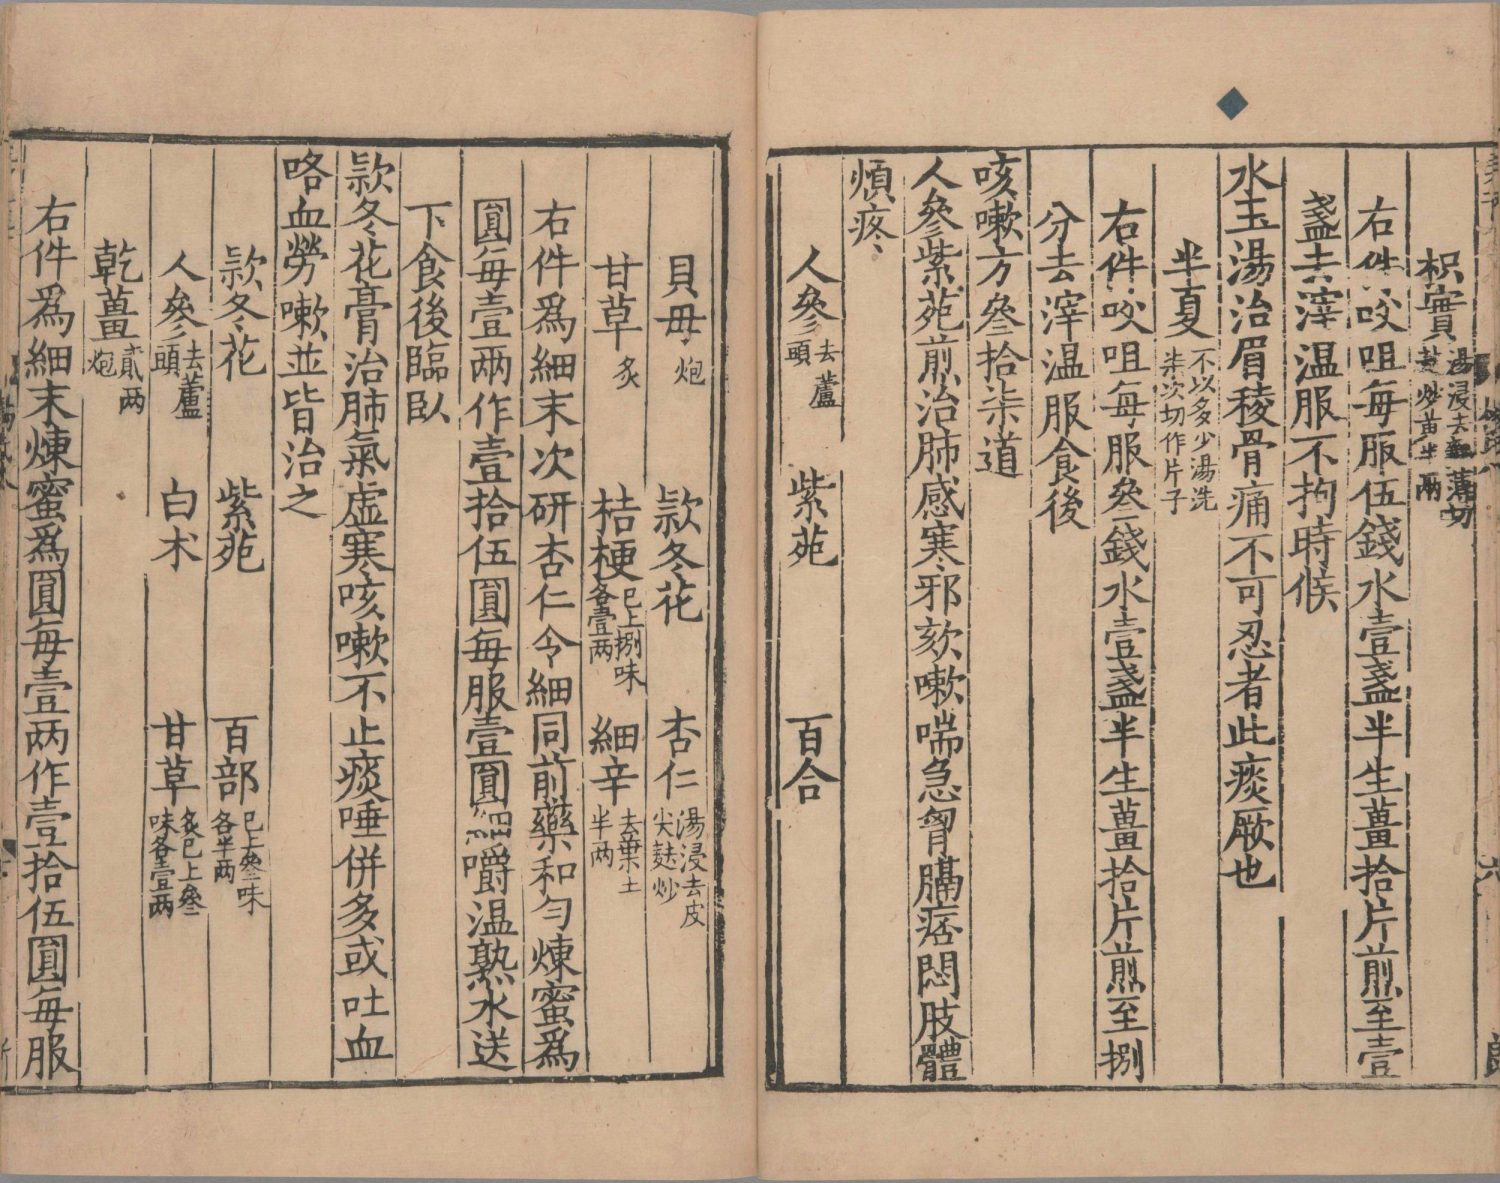 枳實湯浸去瓤薄切麸炒黄半两
右件㕮咀每服伍錢水壹盞半生薑拾片煎至壹
盞去滓温服不拘時候
水玉湯治眉稜骨痛不可忍者此痰厥也
半夏不以多少湯洗柒次切作片子
右件㕮咀每服叄錢水壹盞半生薑拾片煎至捌
分去滓温服食後
咳嗽方叄拾柒道
人參紫菀煎治肺感寒邪欬嗽喘急胷膈痞悶肢體
煩疼
人參去蘆頭 紫菀 百合
貝母炮 款冬花 杏仁湯浸去皮尖麸炒
甘草炙 桔梗已上捌味各壹两 細辛去葉土半两
右件為細末次研杏仁令細同前藥和勻煉蜜為
圓每壹两作壹拾伍圓每服壹圓細嚼温熟水送
下食後臨臥
款冬花膏治肺氣虚寒咳嗽不止痰唾併多或吐血
咯血勞嗽並皆治之
款冬花 紫菀 百部已上叄味各半两
人參去蘆頭 白术 甘草炙已上叄味各壹两
乾薑炮貳两
右件為細末煉蜜為圓每壹两作壹拾伍圓每服